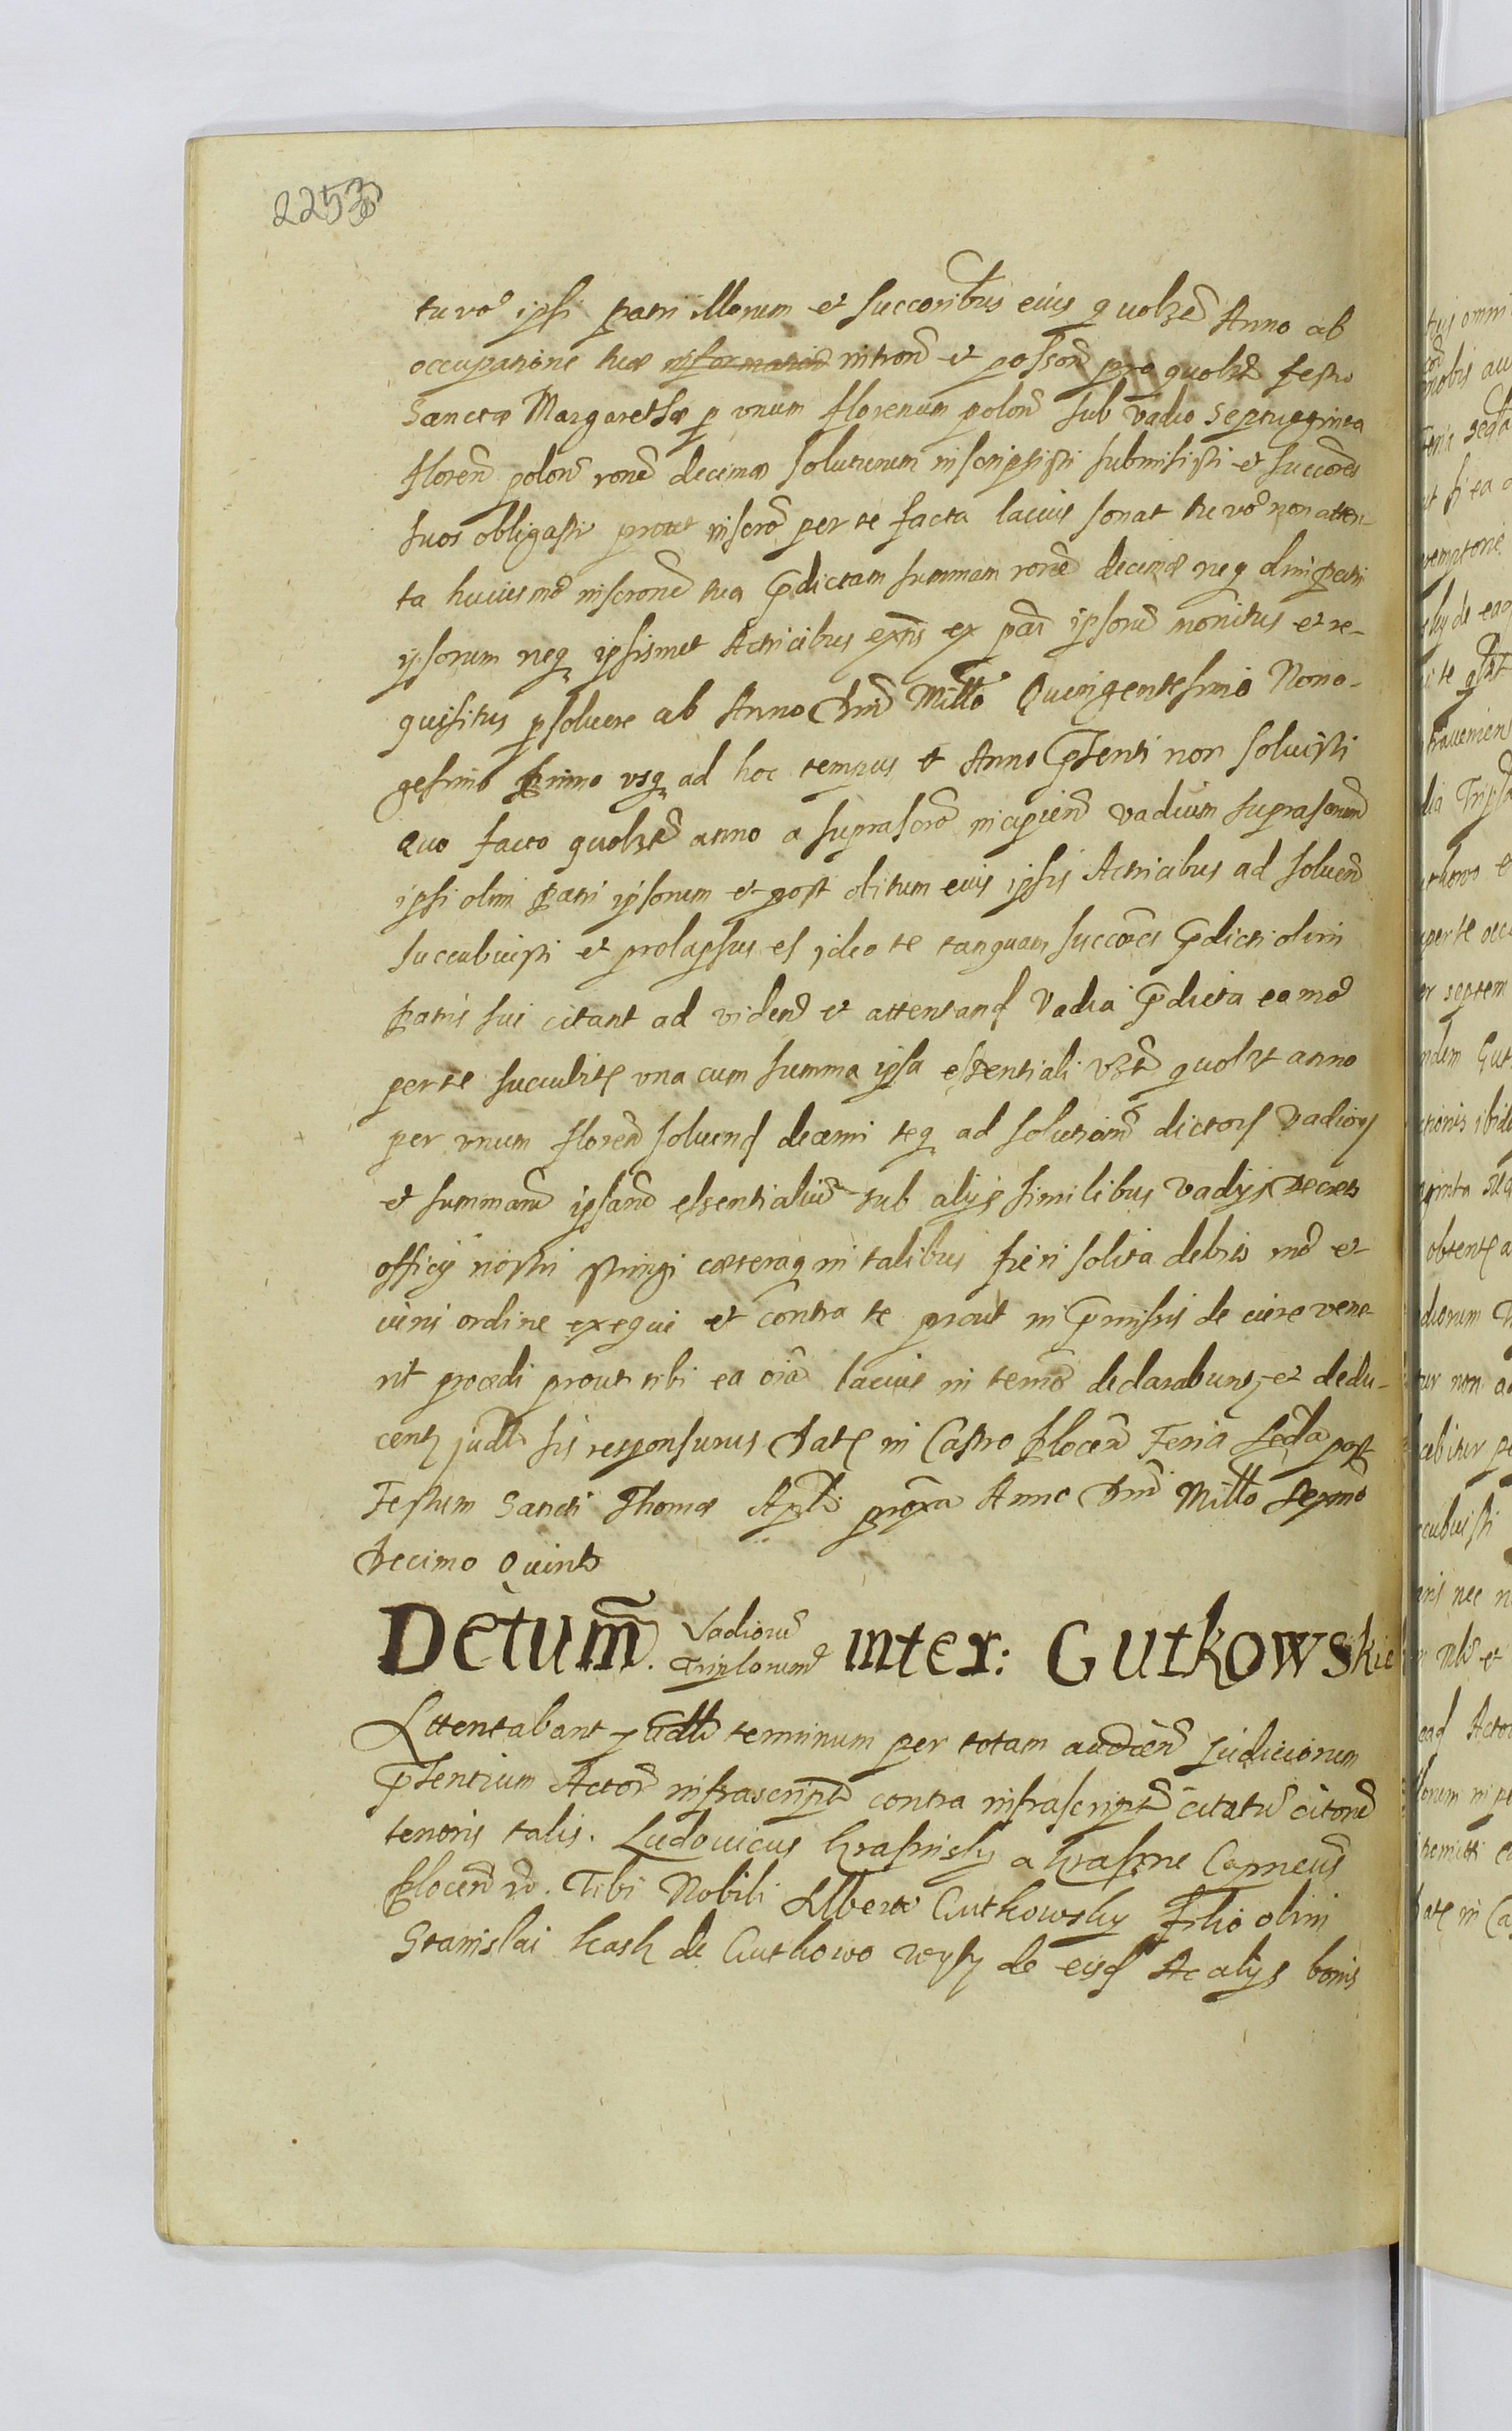 2253
tu vo ipsi patri illorum et succoribus eius quolzt Anno ab
occupatione tuæ information introm et possom pro quolzt festo
Sanctæ Margarethæ p vnum florenum polon sub vadio septuaginta
floren polon rone decimæ soluturum inscripsisti submisisti et succores
suos obligasti prout inscro per te facta lacius sonat tu vo non atten-
ta huiusmo inscrone tua pdictam summam rone decimæ neq olim patri
ipsorum neq ipsismet Actricibus extis ex par ipsoru monitus et re-
quisitus psoluere ab Anno Dni Millo Quingentesimo Nona-
gesimo primo vsq ad hoc tempus et Anno psenti non soluisti
Quo facto quolzt anno a suprascro incipien vadium suprasonum
ipsi olim patri ipsorum et post obitum eius ipsis Actricibus ad soluen
succubuisti et prolapsus es ideo te tanquam succores pdicti olim
patris sui citant ad viden et attentand Vadia pdicta eo mo
per te succubit vna cum summa ipsa essentiali vzt quolzt anno
per vnum floren soluend decerni teq ad solutiom dictor vadior
et summam ipsam essentialium sub alijs similibus vadijs decreto
officij nostri stringi cæteraq in talibus fieri solita debito mo et
iuris ordine exequi et contra te prout in pmissis de iure vene-
rit procedi prout tibi ea oia lacius in termo declarabunt et dedu-
cent judlr sis responsurus Dat in Castro Plocen Feria Scda post
Festum Sancti Thomæ Apli proxa Anno Dni Millo Sexmo
Decimo Quinto
Detum. Vadioru Triplorum inter: Gutkowskie
Attentabant judlr terminum per totam audien Judiciorum
psentium Actor infrascript contra infrascript citatu citone
tenoris talis. Ludouicus Krasinsky a Krasne Capneus
Plocen &c. Tibi Nobili Alberto Gutkowsky filio olim
Stanislai Kask de Gutkowo wysz de eisd Ac alijs bonis